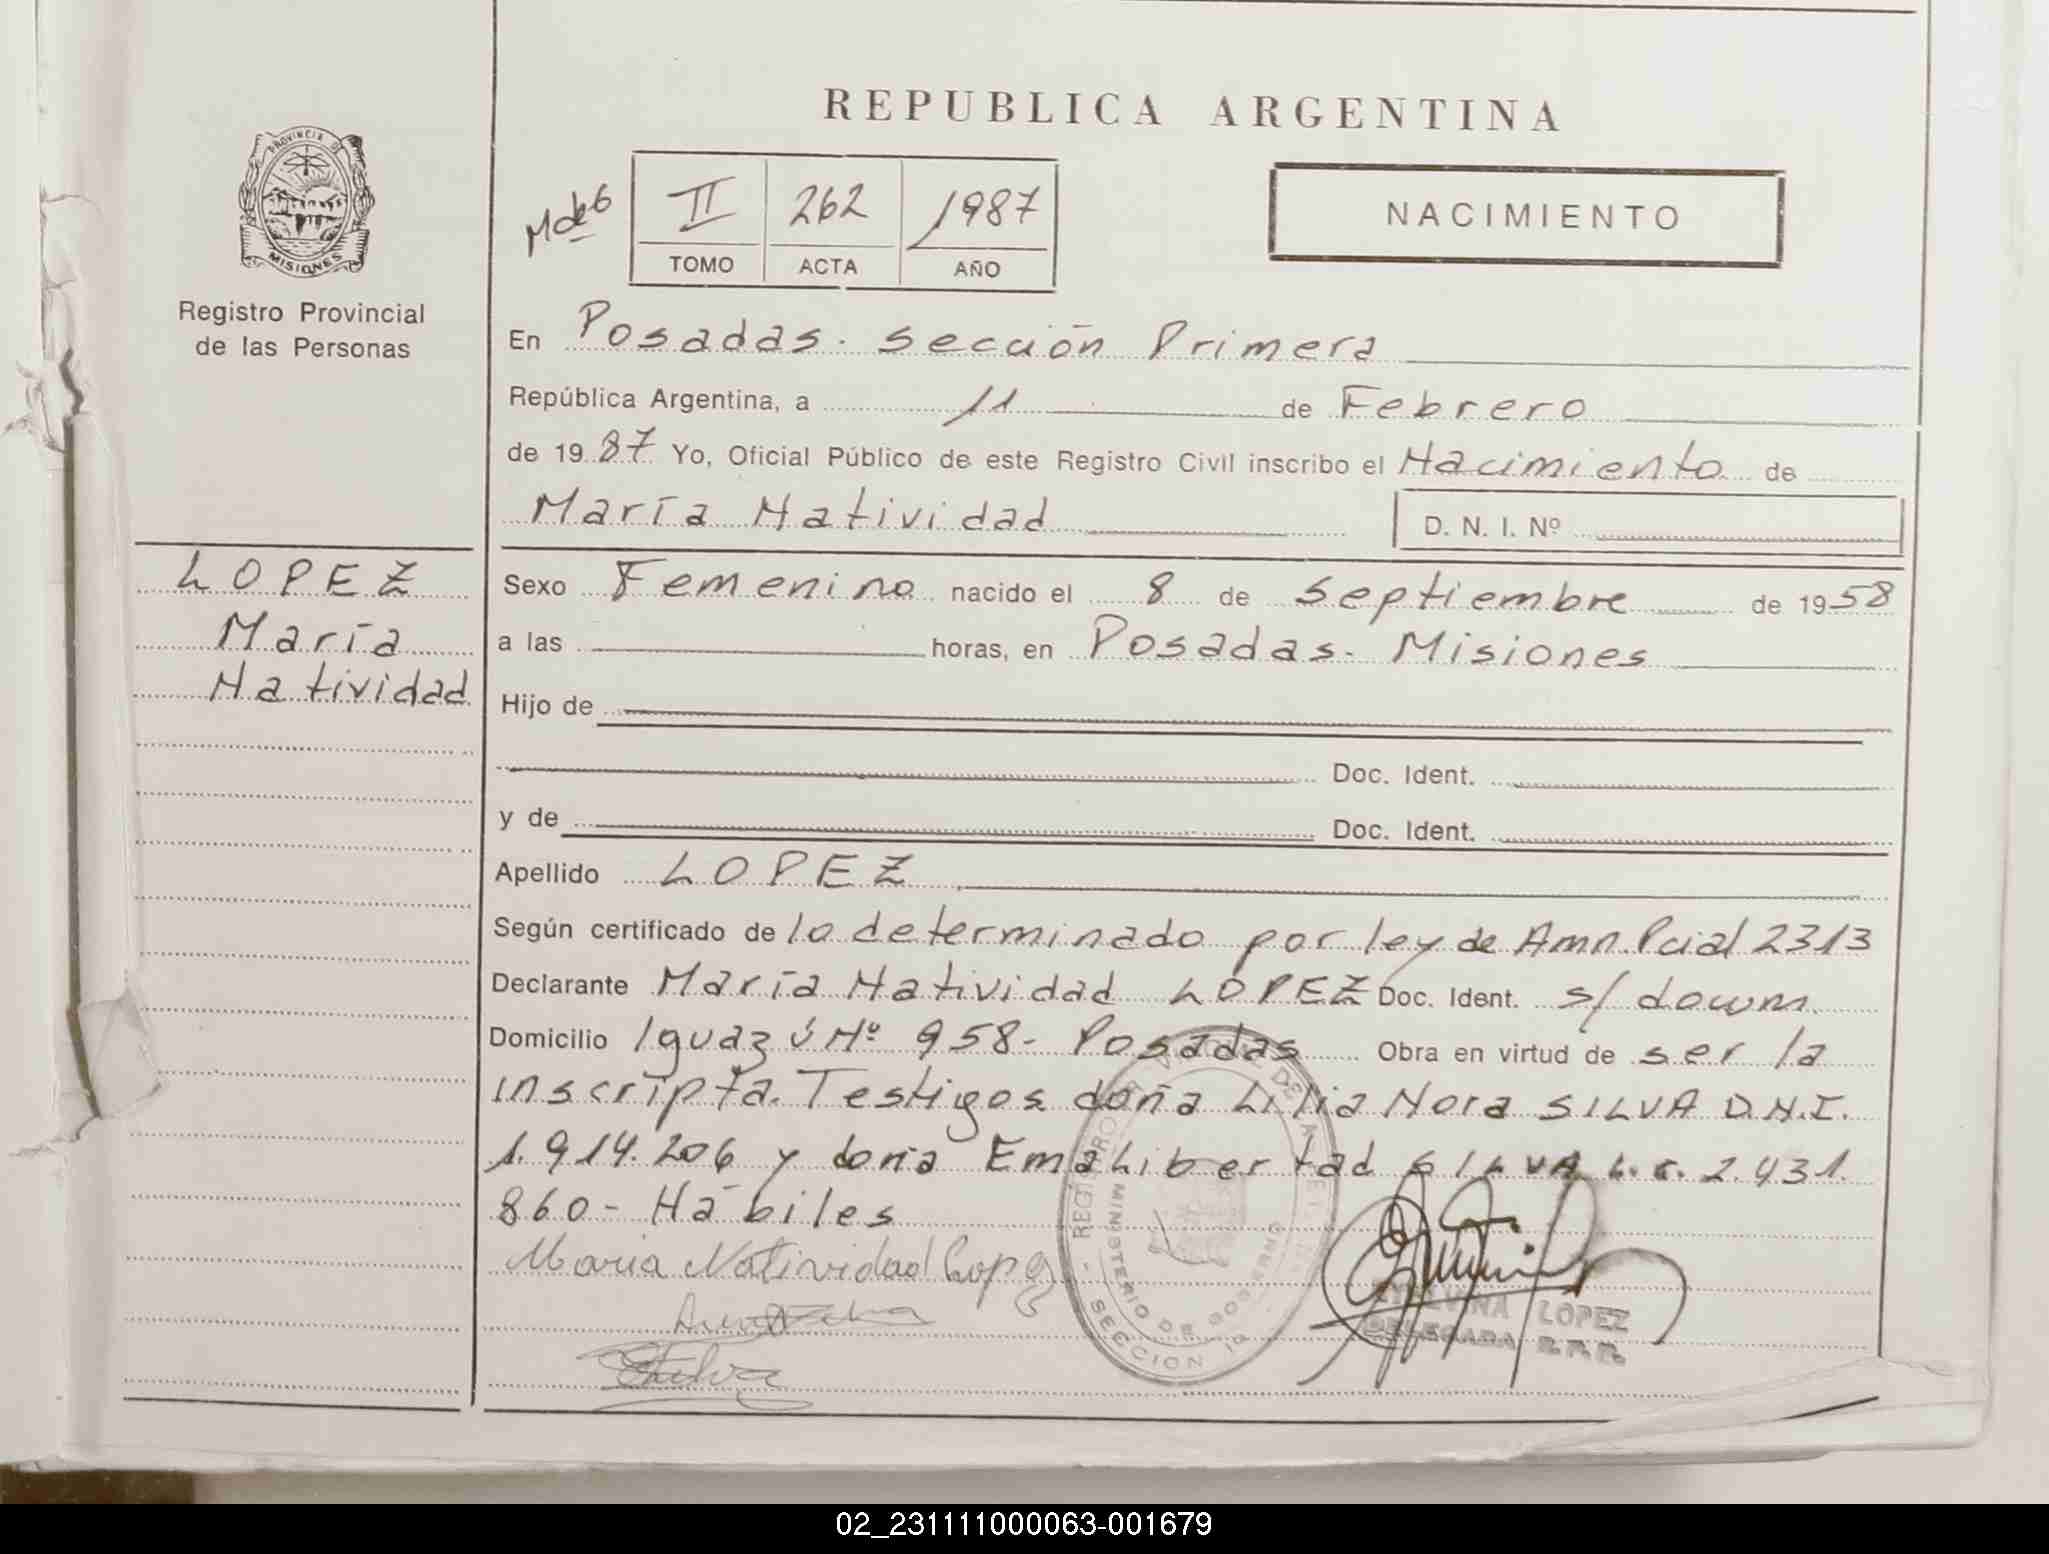 REPUBLICA ARGENTINA
PROVINCIA DE
MISIONES
Registro Provincial
de las Personas
M de 6
II 262 1987
TOMO ACTA AÑO
NACIMIENTO
En Posadas. sección Primera
República Argentina, a 11 de Febrero
de 1987 Yo, Oficial Público de este Registro Civil inscribo el Nacimiento de
María Natividad D. N. I. Nº
LOPEZ
María
Natividad
Sexo Femenino nacido el 8 de septiembre de 1958
a las horas, en Posadas- Misiones
Hijo de
Doc. Ident.
y de Doc. Ident.
Apellido LOPEZ
Según certificado de lo determinado por ley de Amn. Pcial 2313
Declarante María Natividad LOPEZ Doc. Ident. s/ docum.
Domicilio Iguazú Nº 958- Posadas Obra en virtud de ser la
inscripta. Testigos doña Lilia Nora SILVA D.N.I.
1.914.206 y doña Ema Libertad SILVA L.C. 2.431.
860- Hábiles
Maria Natividad Lopez
REGISTRO PROVINCIAL DE LAS PERSONAS
MINISTERIO DE GOBIERNO
SECCION 1ª
LOPEZ
DELEGADA R.P.P.
02_231111000063-001679